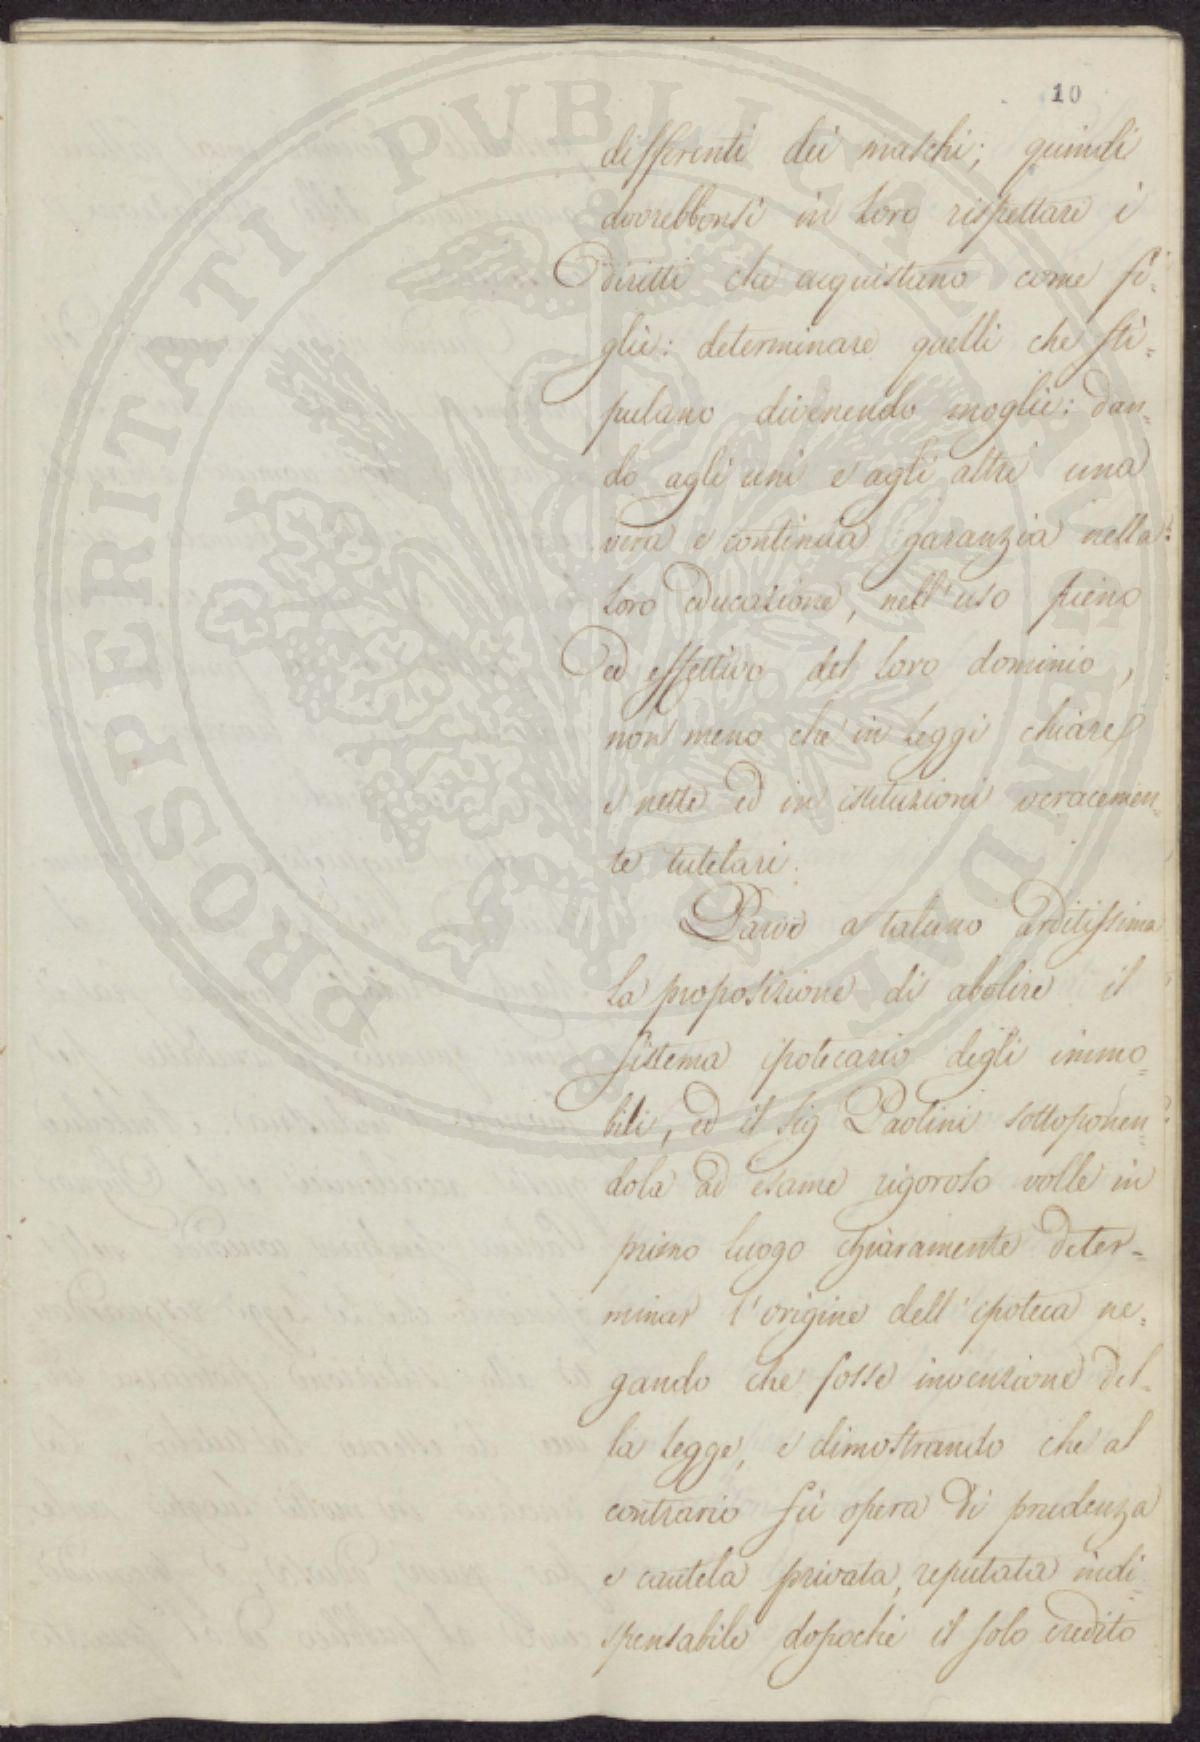 10
differenti dei maschi; quindi
dovrebbonsi in loro rispettare i
diritti che acquistano come fi-
glie: determinare quelli che sti=
pulano divenendo moglie: dan=
do agli uni e agli altri una
vera e continua garanzia nella
loro educazione, nell'uso pieno
ed effettivo del loro dominio,
non meno che in leggi chiare
e nette ed in istituzioni veracemen=
te tutelari.
Parve a taluno arditissima
la proposizione di abolire il
sistema ipotecario degli immo=
bili, ed il Sig Paolini sottoponen=
dola ad esame rigoroso volle in
primo luogo chiaramente deter=
minar l'origine dell'ipoteca ne=
gando che fosse invenzione del=
la legge, e dimostrando che al
contrario fù opera di prudenza
e cautela privata, reputata indi=
spensabile dopochè il solo credito
PROSPERITATI PUBLICAE AUGENDAE